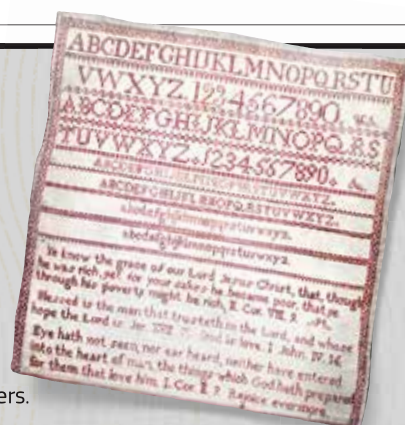 ABCDEFGHIJKLMNOPQRSTU
VWXYZ 1234567890.
ABCDEFGHIJKLMNOPQRS
TUVWXYZ. 1234567890.
ABCDEFGHIJKLMNOPQRSTUVWXYZ.
ABCDEFGHIJKL NOPQRSTUVWXYZ.
abcdefghijklmnopqrstuvwxyz.
abcdefghijklmnopqrstuvwxyz.
Ye know the grace of our Lord Jesus Christ, that, though
he was rich, yet for your sakes he became poor, that ye
through his poverty might be rich. II. Cor. VIII. 9.
Blessed is the man that trusteth in the Lord, and whose
hope the Lord is. Jer. XVII. God is love. I. John. IV. 16.
Eye hath not seen, nor ear heard, neither have entered
into the heart of man, the things which God hath prepared
for them that love him. I. Cor. II. 9. Rejoice evermore.
ers.